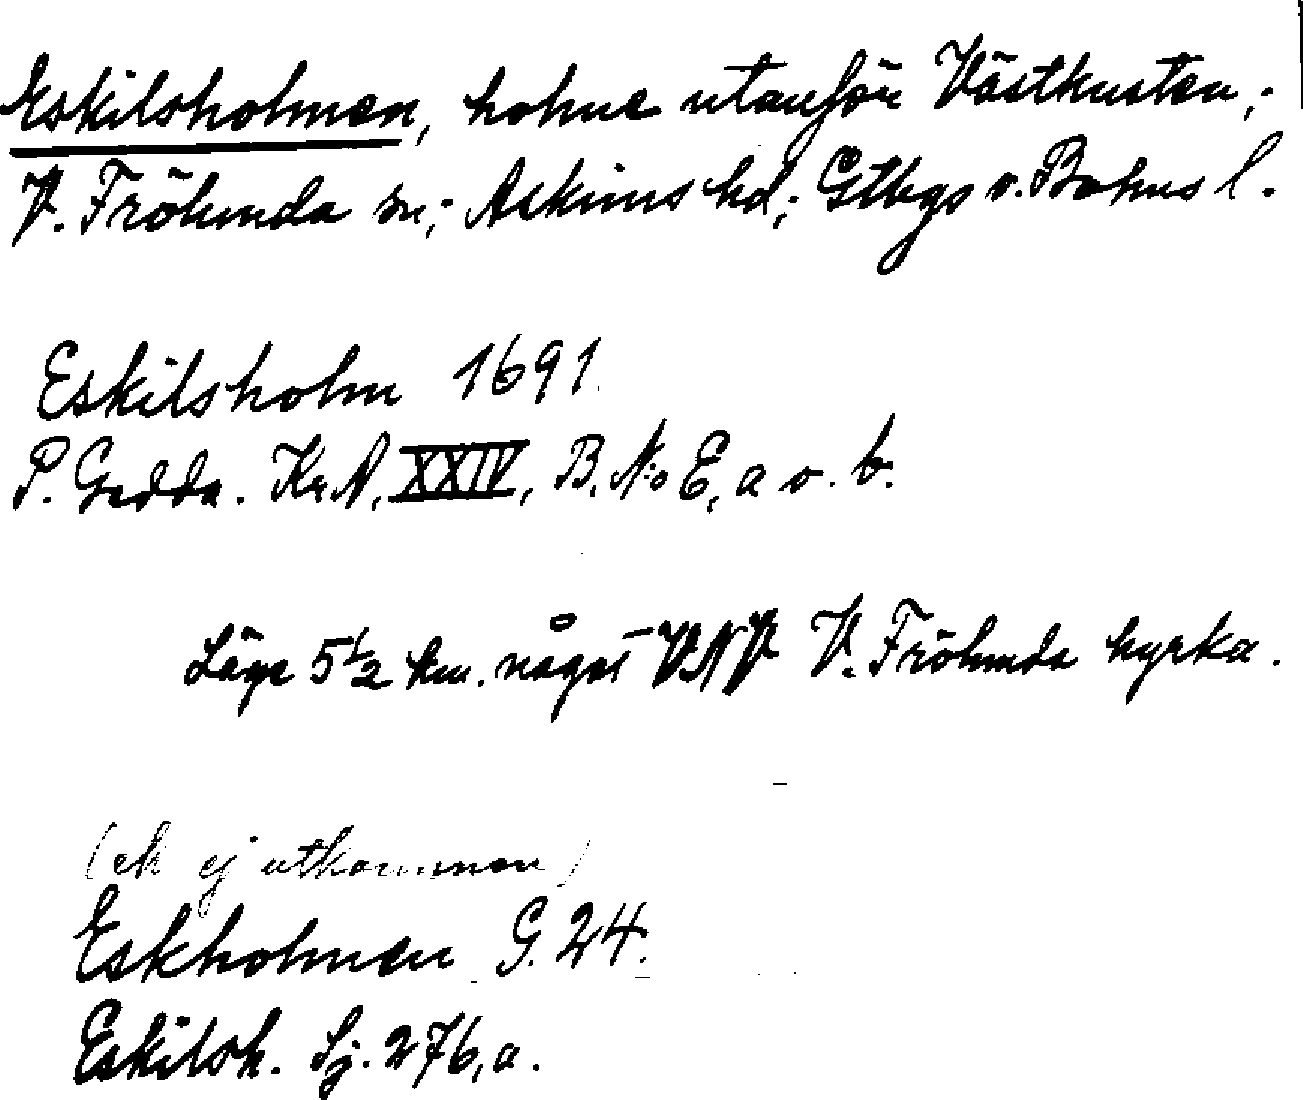 Eskilsholmen, holme utanför Västkusten,;
V. Frölunda sn,; Askims hd,; Gtbgs o. Bohus l.
Eskilsholm 1691.
P. Gedda. Kr.A. XXIV, B. N:o E, a o. b.
Läge 5 1/2 km. något VNV V. Frölunda kyrka.
(ek ej utkommen)
Eskholmen G. 24.
Eskilsh. Sj. 276, a.